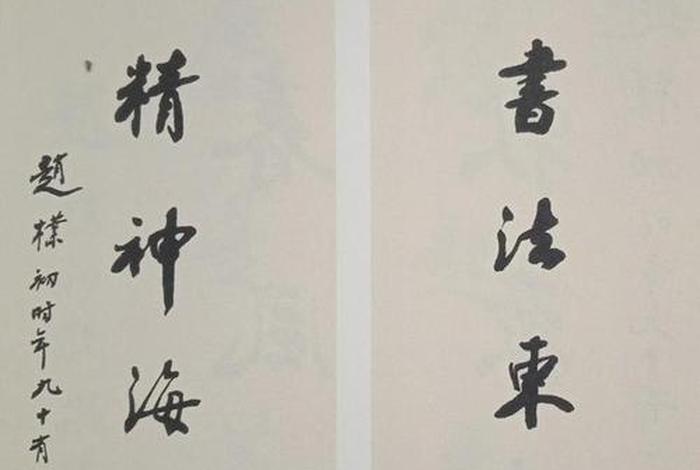 書法東
精神海
趙樸初时年九十有